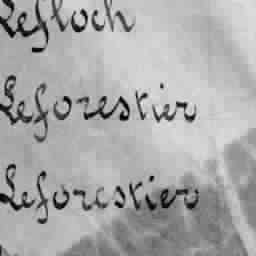 Lefloch
Leforestier
Leforestier